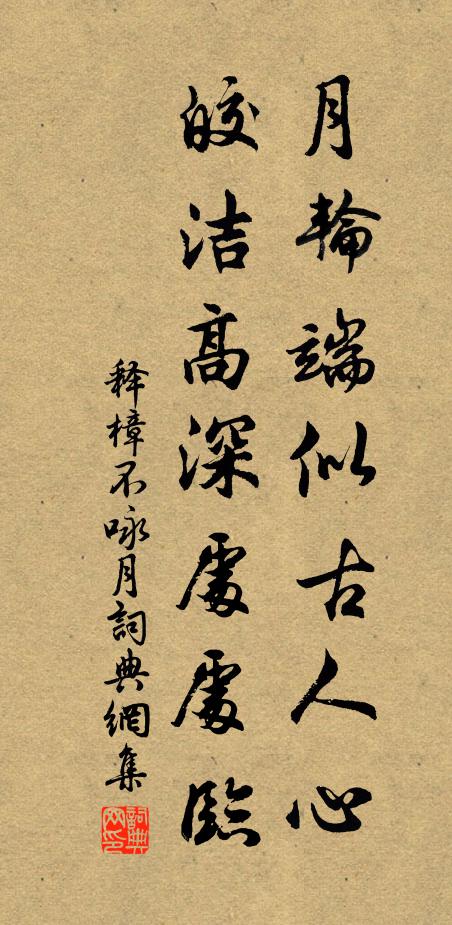 月輪端似古人心
皎洁高深處處臨
释樟不咏月詞典網集
詞典网印